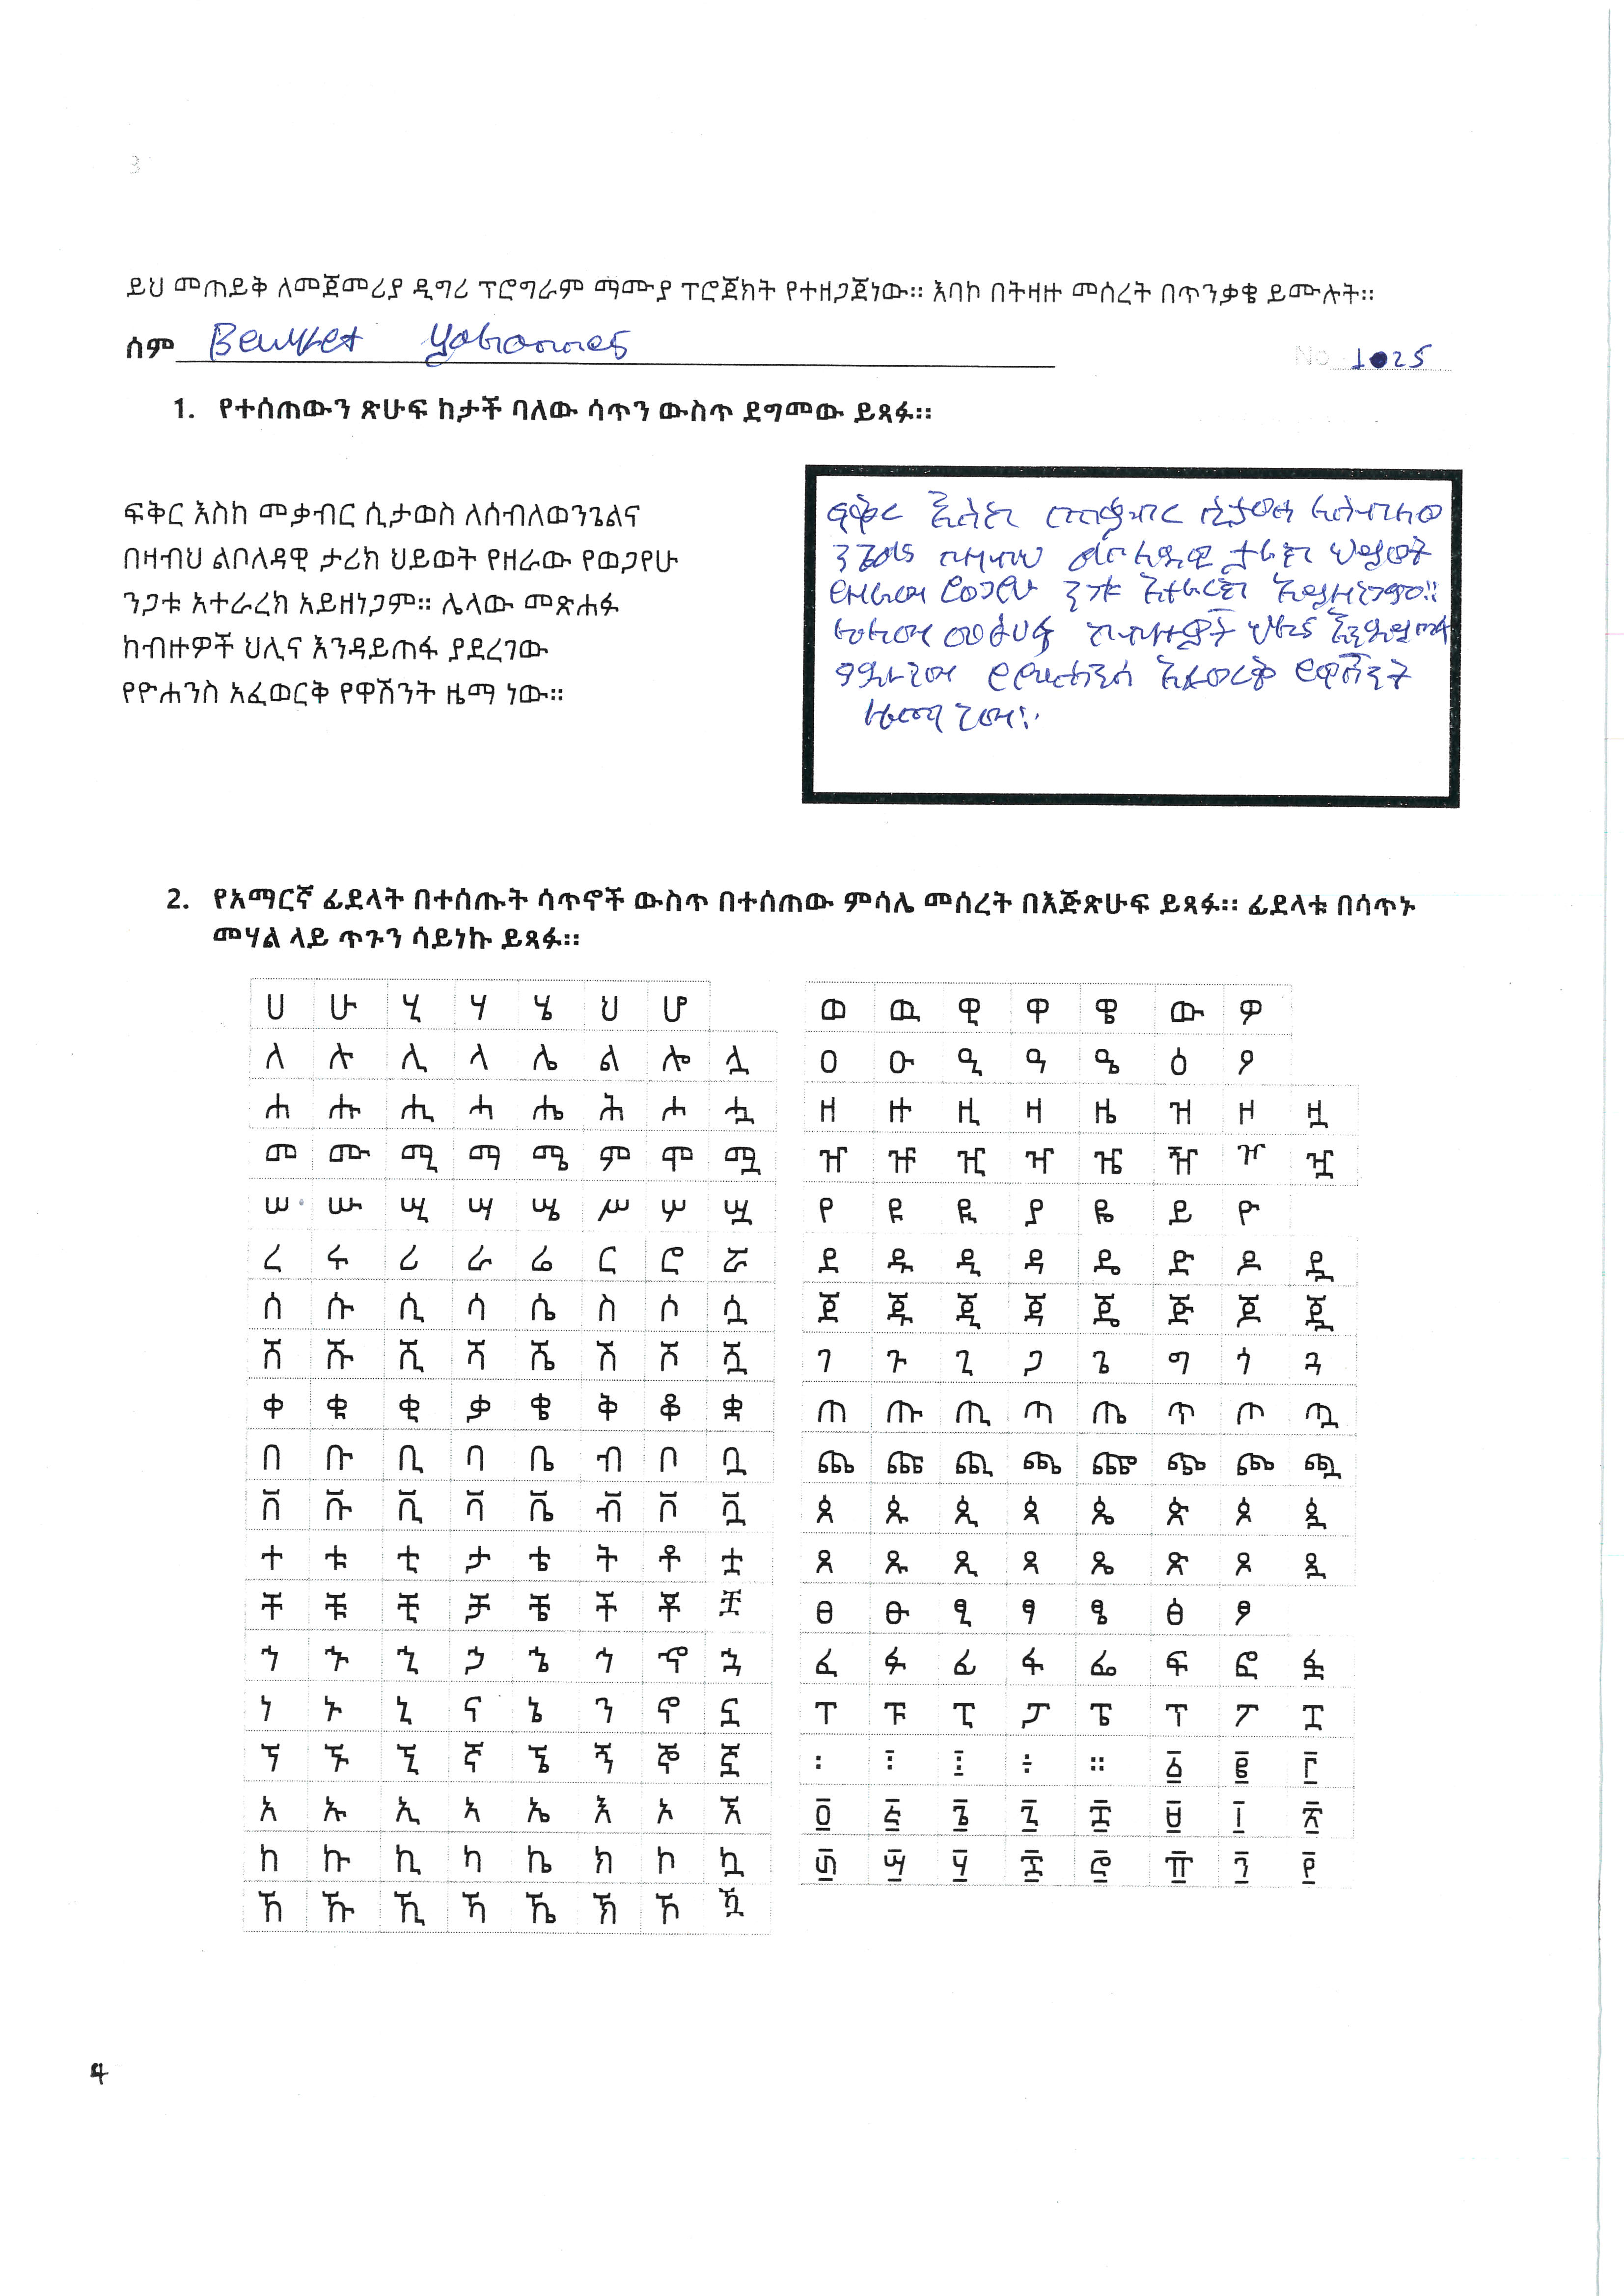 3
ይህ መጠይቅ ለመጀመሪያ ዲግሪ ፕሮግራም ማሙያ ፕሮጀክት የተዘጋጀነው። እባኮ በትዛዙ መሰረት በጥንቃቄ ይሙሉት።
ስም Yohannes
No 1025
1. የተሰጠውን ጽሁፍ ከታች ባለው ሳጥን ውስጥ ደግመው ይጻፉ።
ፍቅር እስከ መቃብር ሲታወስ ለሰብለወንጌልና
በዛብህ ልቦለዳዊ ታሪክ ህይወት የዘራው የወጋየሁ
ንጋቱ አተራረክ አይዘነጋም። ሌላው መጽሐፉ
ከብዙዎች ህሊና እንዳይጠፋ ያደረገው
የዮሐንስ አፈወርቅ የዋሽንት ዜማ ነው።
ፍቅር እስከ መቃብር ሲታወስ ለሰብለወ
ንጌልና በዛብህ ልቦለዳዊ ታሪክ ህይወት
የዘራው የወጋየሁ ንጋቱ አተራረክ አይዘነጋም።
ሌላው መፅሀፉ ከብዙዎች ህሊና እንዳይጠፋ
ያደረገው የዮሐንስ አፈወርቅ የዋሽንት
ዜማ ነው።
2. የአማርኛ ፊደላት በተሰጡት ሳጥኖች ውስጥ በተሰጠው ምሳሌ መሰረት በእጅጽሁፍ ይጻፉ። ፊደላቱ በሳጥኑ
መሃል ላይ ጥጉን ሳይነኩ ይጻፉ።
ሀ ሁ ሂ ሃ ሄ ህ ሆ
ለ ሉ ሊ ላ ሌ ል ሎ ሏ
ሐ ሑ ሒ ሓ ሔ ሕ ሖ ሗ
መ ሙ ሚ ማ ሜ ም ሞ ሟ
ሠ ሡ ሢ ሣ ሤ ሥ ሦ ሧ
ረ ሩ ሪ ራ ሬ ር ሮ ሯ
ሰ ሱ ሲ ሳ ሴ ስ ሶ ሷ
ሸ ሹ ሺ ሻ ሼ ሽ ሾ ሿ
ቀ ቁ ቂ ቃ ቄ ቅ ቆ ቋ
በ ቡ ቢ ባ ቤ ብ ቦ ቧ
ቨ ቩ ቪ ቫ ቬ ቭ ቮ ቯ
ተ ቱ ቲ ታ ቴ ት ቶ ቷ
ቸ ቹ ቺ ቻ ቼ ች ቾ ቿ
ኀ ኁ ኂ ኃ ኄ ኅ ኆ ኋ
ነ ኑ ኒ ና ኔ ን ኖ ኗ
ኘ ኙ ኚ ኛ ኜ ኝ ኞ ኟ
አ ኡ ኢ ኣ ኤ እ ኦ ኧ
ከ ኩ ኪ ካ ኬ ክ ኮ ኳ
ኸ ኹ ኺ ኻ ኼ ኽ ኾ ዃ
ወ ዉ ዊ ዋ ዌ ው ዎ
ዐ ዑ ዒ ዓ ዔ ዕ ዖ
ዘ ዙ ዚ ዛ ዜ ዝ ዞ ዟ
ዠ ዡ ዢ ዣ ዤ ዥ ዦ ዧ
የ ዩ ዪ ያ ዬ ይ ዮ
ደ ዱ ዲ ዳ ዴ ድ ዶ ዷ
ጀ ጁ ጂ ጃ ጄ ጅ ጆ ጇ
ገ ጉ ጊ ጋ ጌ ግ ጎ ጓ
ጠ ጡ ጢ ጣ ጤ ጥ ጦ ጧ
ጨ ጩ ጪ ጫ ጬ ጭ ጮ ጯ
ጰ ጱ ጲ ጳ ጴ ጵ ጶ ጷ
ጸ ጹ ጺ ጻ ጼ ጽ ጾ ጿ
ፀ ፁ ፂ ፃ ፄ ፅ ፆ
ፈ ፉ ፊ ፋ ፌ ፍ ፎ ፏ
ፐ ፑ ፒ ፓ ፔ ፕ ፖ ፗ
፡ ፤ ። ፩ ፪ ፫
፬ ፭ ፮ ፯ ፰ ፱ ፲ ፳
፴ ፵ ፶ ፷ ፸ ፹ ፺ ፻
4